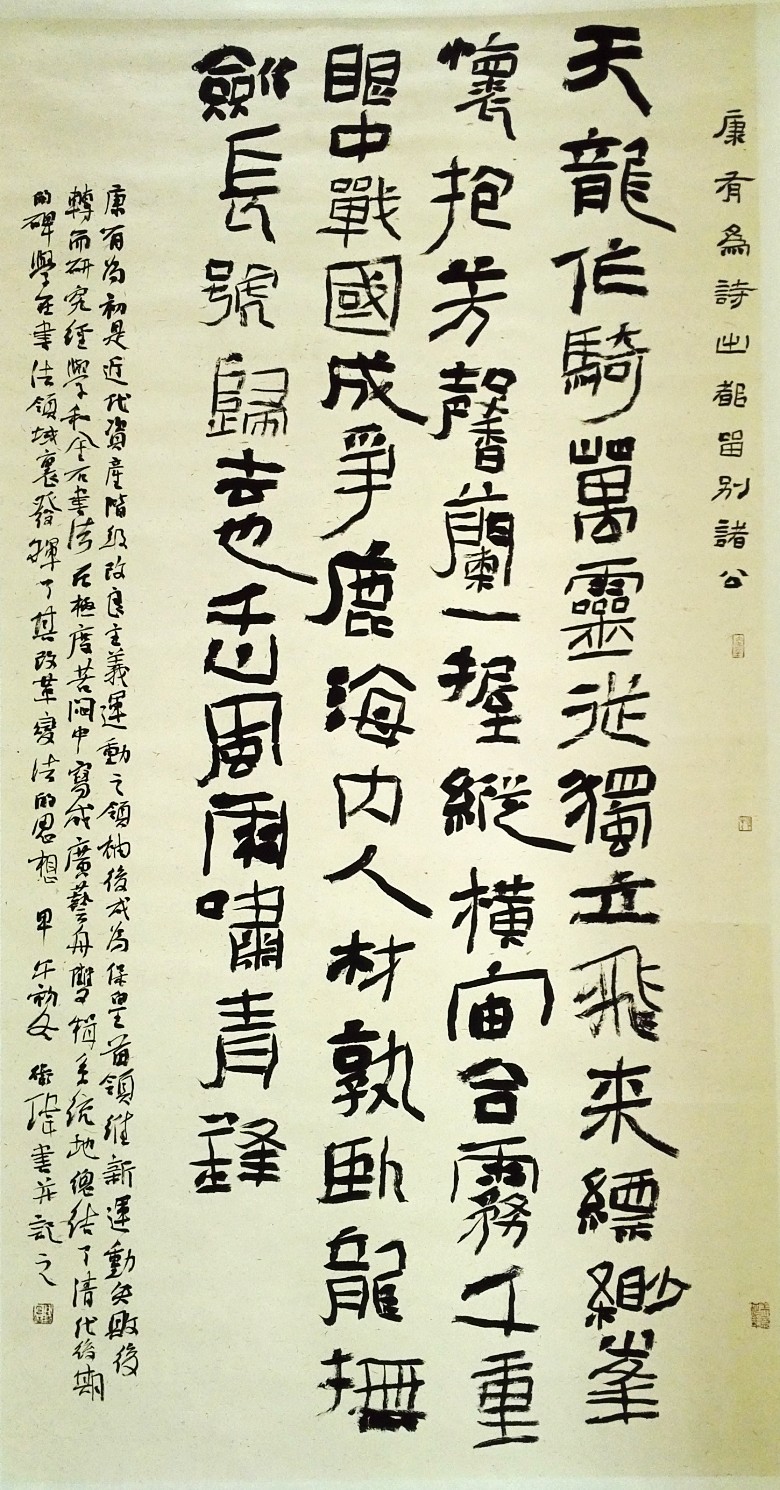 康有為詩出都留別諸公
天龍作騎萬靈從獨立飛來縹緲峯
懷抱芳馨蘭一握縱橫宙合霧千重
眼中戰國成爭鹿海內人材孰臥龍撫
劍長號歸去也千山風雨嘯青鋒
康有為初是近代資產階級改良主義運動之領袖後成為保皇首領維新運動失敗後
轉而研究經學和金石書法在極度苦悶中寫成廣藝舟雙楫系統地總結了清代後期
的碑學在書法領域裏發揮了其改革變法的思想 甲午初冬 書并記之